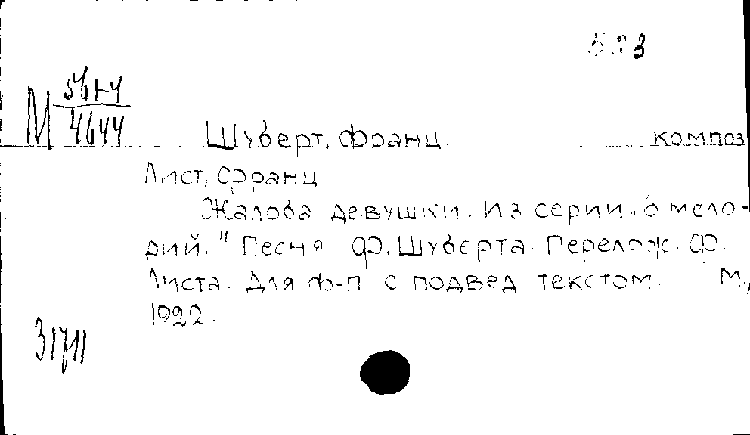 М
4644
Шуберт, Франц композ
Лист, Франц
Жалоба девушки. Из серии „6 мело-
дий." Песня Ф. Шуберта. Перелож. Ф.
Листа. Для ф-п с подвед текстом. М.,
1922.